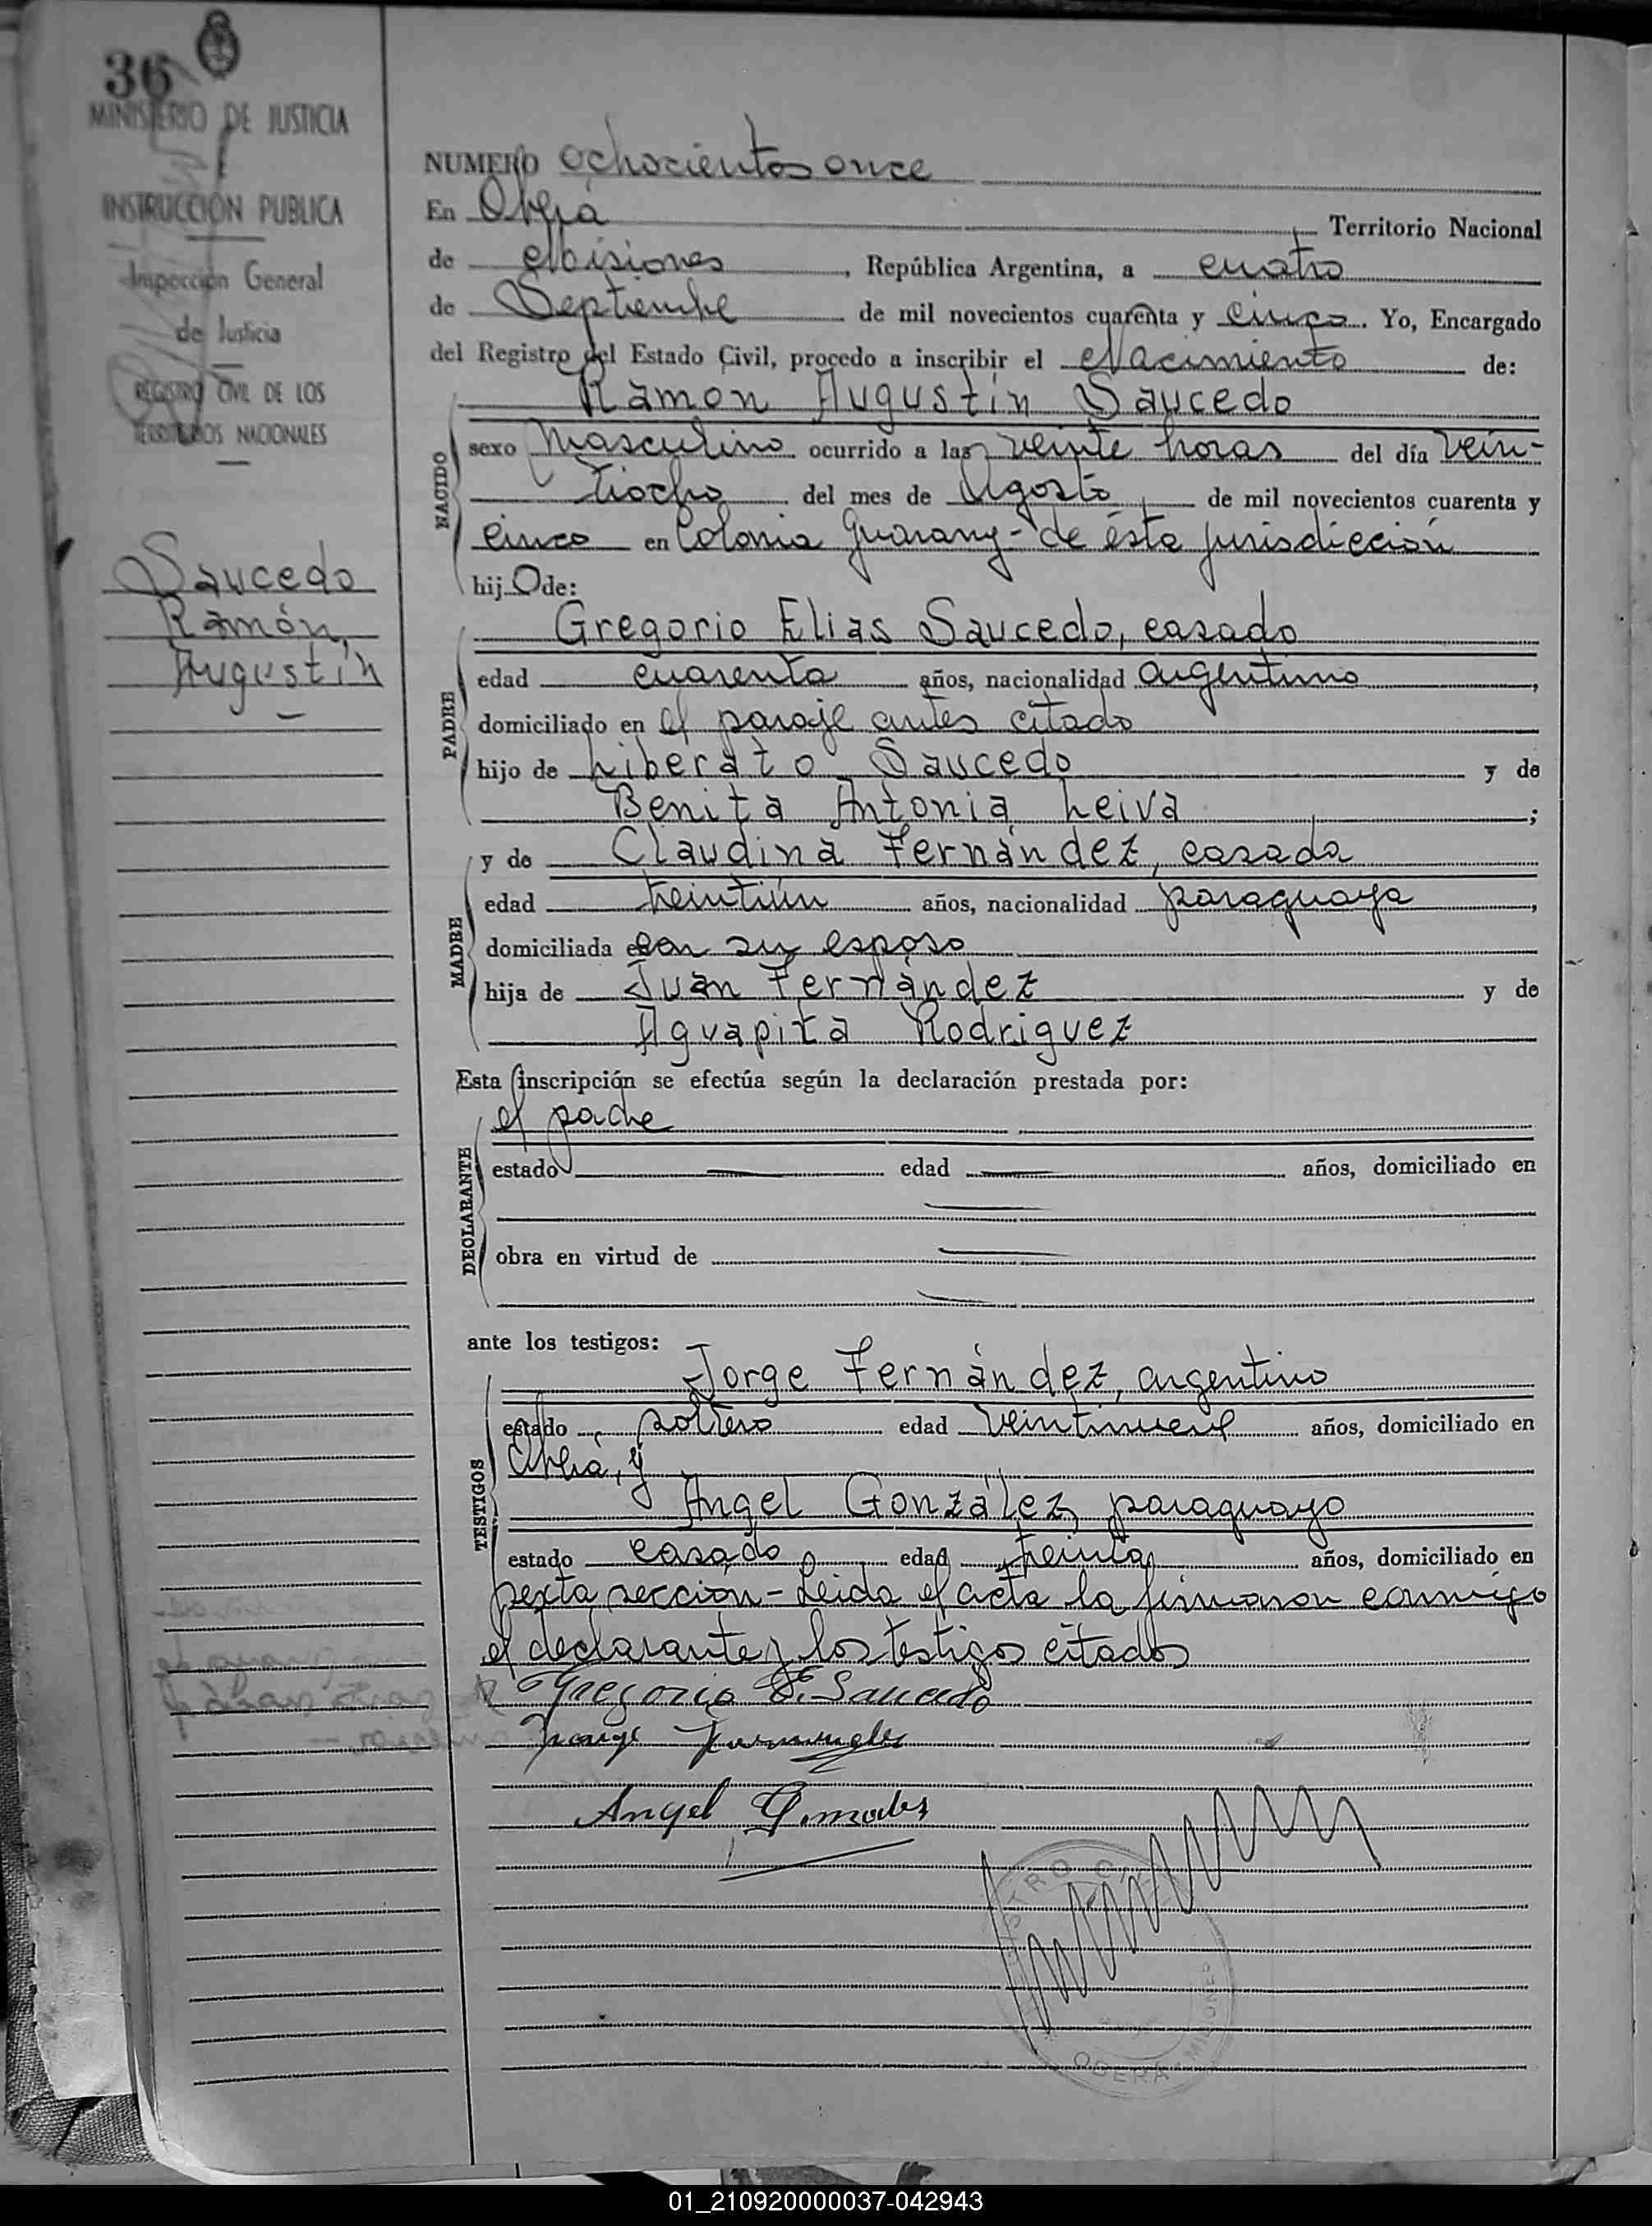 36
MINISTERIO DE JUSTICIA
INSTRUCCIÓN PUBLICA
Inspección General
de Justicia
REGISTRO CIVIL DE LOS
TERRITORIOS NACIONALES
Saucedo
Ramón,
Augustín
NUMERO Ochocientos once
En Oberá Territorio Nacional
de Misiones, República Argentina, a cuatro
de Septiembre de mil novecientos cuarenta y cinco. Yo, Encargado
del Registro del Estado Civil, procedo a inscribir el Nacimiento de:
Ramon Augustín Saucedo
NACIDO
sexo masculino ocurrido a las veinte horas del día vein-
tiocho del mes de Agosto de mil novecientos cuarenta y
cinco en Colonia Guarany - de ésta jurisdicción
hijo de:
PADRE
Gregorio Elias Saucedo, casado
edad cuarenta años, nacionalidad argentino,
domiciliado en el paraje antes citado
hijo de Liberato Saucedo y de
Benita Antonia Leiva;
MADRE
y de Claudina Fernández, casada
edad treintiún años, nacionalidad paraguaya,
domiciliada con su esposo
hija de Juan Fernández y de
Aguapita Rodriguez
Esta inscripción se efectúa según la declaración prestada por:
DECLARANTE
el padre
estado — edad — años, domiciliado en
—
obra en virtud de —
—
ante los testigos:
TESTIGOS
Jorge Fernández, argentino
estado soltero edad veintinueve años, domiciliado en
Oberá, y
Angel González, paraguayo
estado casado edad treinta años, domiciliado en
sexta sección - Leida el acta la firmaron conmigo
el declarante y los testigos citados
Gregorio E. Saucedo
Angel Gonzales
REGISTRO CIVIL
OBERA MISIONES
01_210920000037-042943